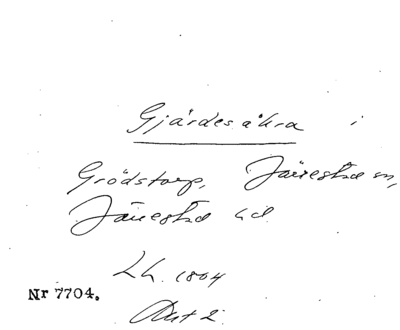 Gjärdesåkra i
Grödstorp, Järrestad sn,
Järrestad hd
Lh. 1804
Nr 7704.
Akt 2